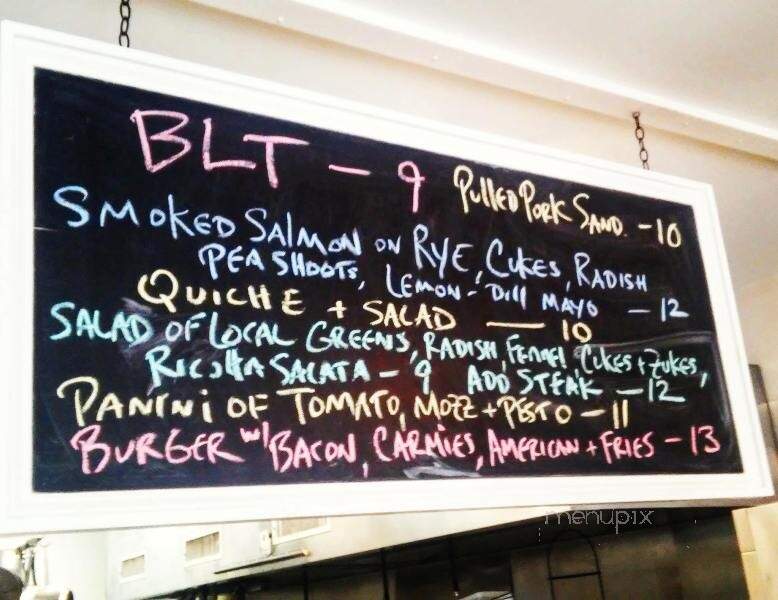 BLT - 9
Pulled Pork Sand. - 10
SMOKED SALMON ON RYE, CUKES, RADISH
PEA SHOOTS, LEMON-Dill MAYO - 12
QUICHE + SALAD — 10
SALAD OF LOCAL GREENS, RADISH, FENNEL, CUKES + ZUKES,
RICOTTA SALATA - 9 ADD STEAK - 12
PANINI OF TOMATO, MOZZ + PESTO - 11
BURGER w/ BACON, CARMIES, AMERICAN + FRIES - 13
menupix